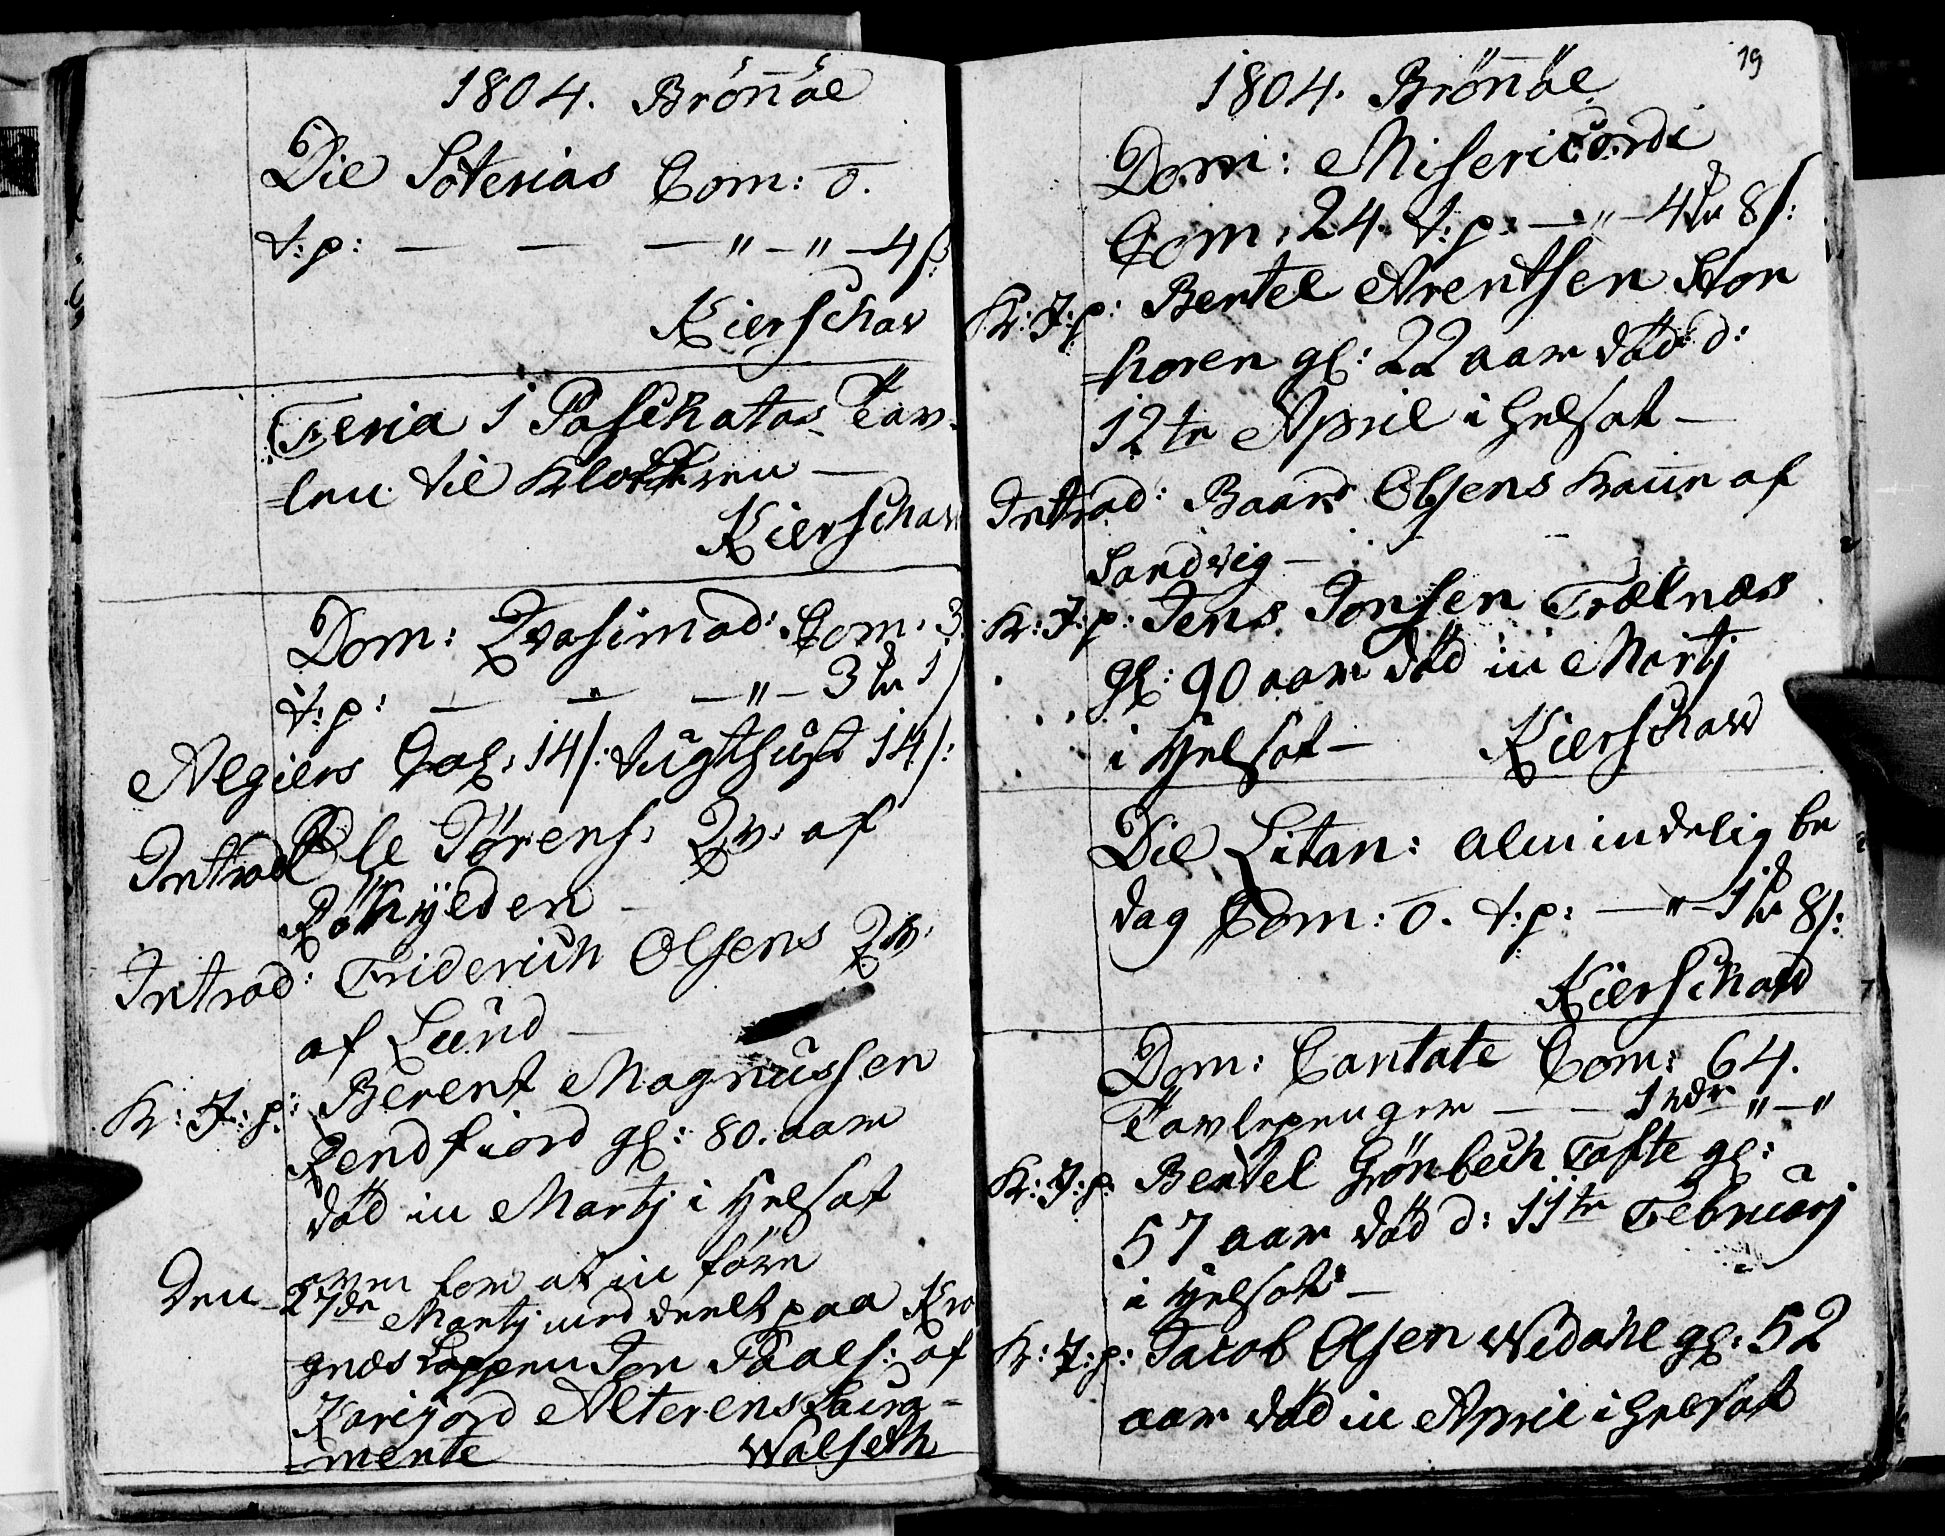 1804. Brönöe
Die Soterias Com: 0.
t:p: — — — " — " — 4 ß
Kierschow
Feria 1 Paschatos Tav-
len til Klokkeren —
Kierschow
Dom: Qvasimod: Com: 3
t:p: — — — " — 3 1
Algiers Cas: 14 ß: tugthuset 14 ß:
Introd: Ole Jörens: Qv: af
Röthyeden —
Introd: Friderich Olsens Qv:
af Lund —
K: J: p: Berent Magnussen
Lendfiord gl: 80. aar
död in Martj i Helsot
Den 27de Martj med deelt paa Kro
gnæs Lappen Jon Paals: af
Karifjord Alterens Sacra=
=mente Walseth
19
1804. Brönöe
Dom: Misericordi
Com: 24. t:p: — " — 4 8 ß:
K: J: p: Bertel Arentsen Stor
=horen gl: 22 aar död d:
12te April i Helsot —
Introd: Baard Olsens Kaane af
Sandvig —
K: J: p: Jens Jonsen Trælnæs
gl: 90 aar död in Martj
i Helsot — Kierschow
Die Litan: almindelig be
dag Com: 0. t:p: — " — 1 8 ß:
Kierschow
Dom: Cantate Com: 64.
Tavlepenger — — 1 rdr " — "
K: J: p: Bertel Grönbech Tofte gl:
57 aar död d: 11te Februarj
i Helsot —
K: J: p: Jacob Olsen Wedahl gl: 52
aar död in April i Helsot